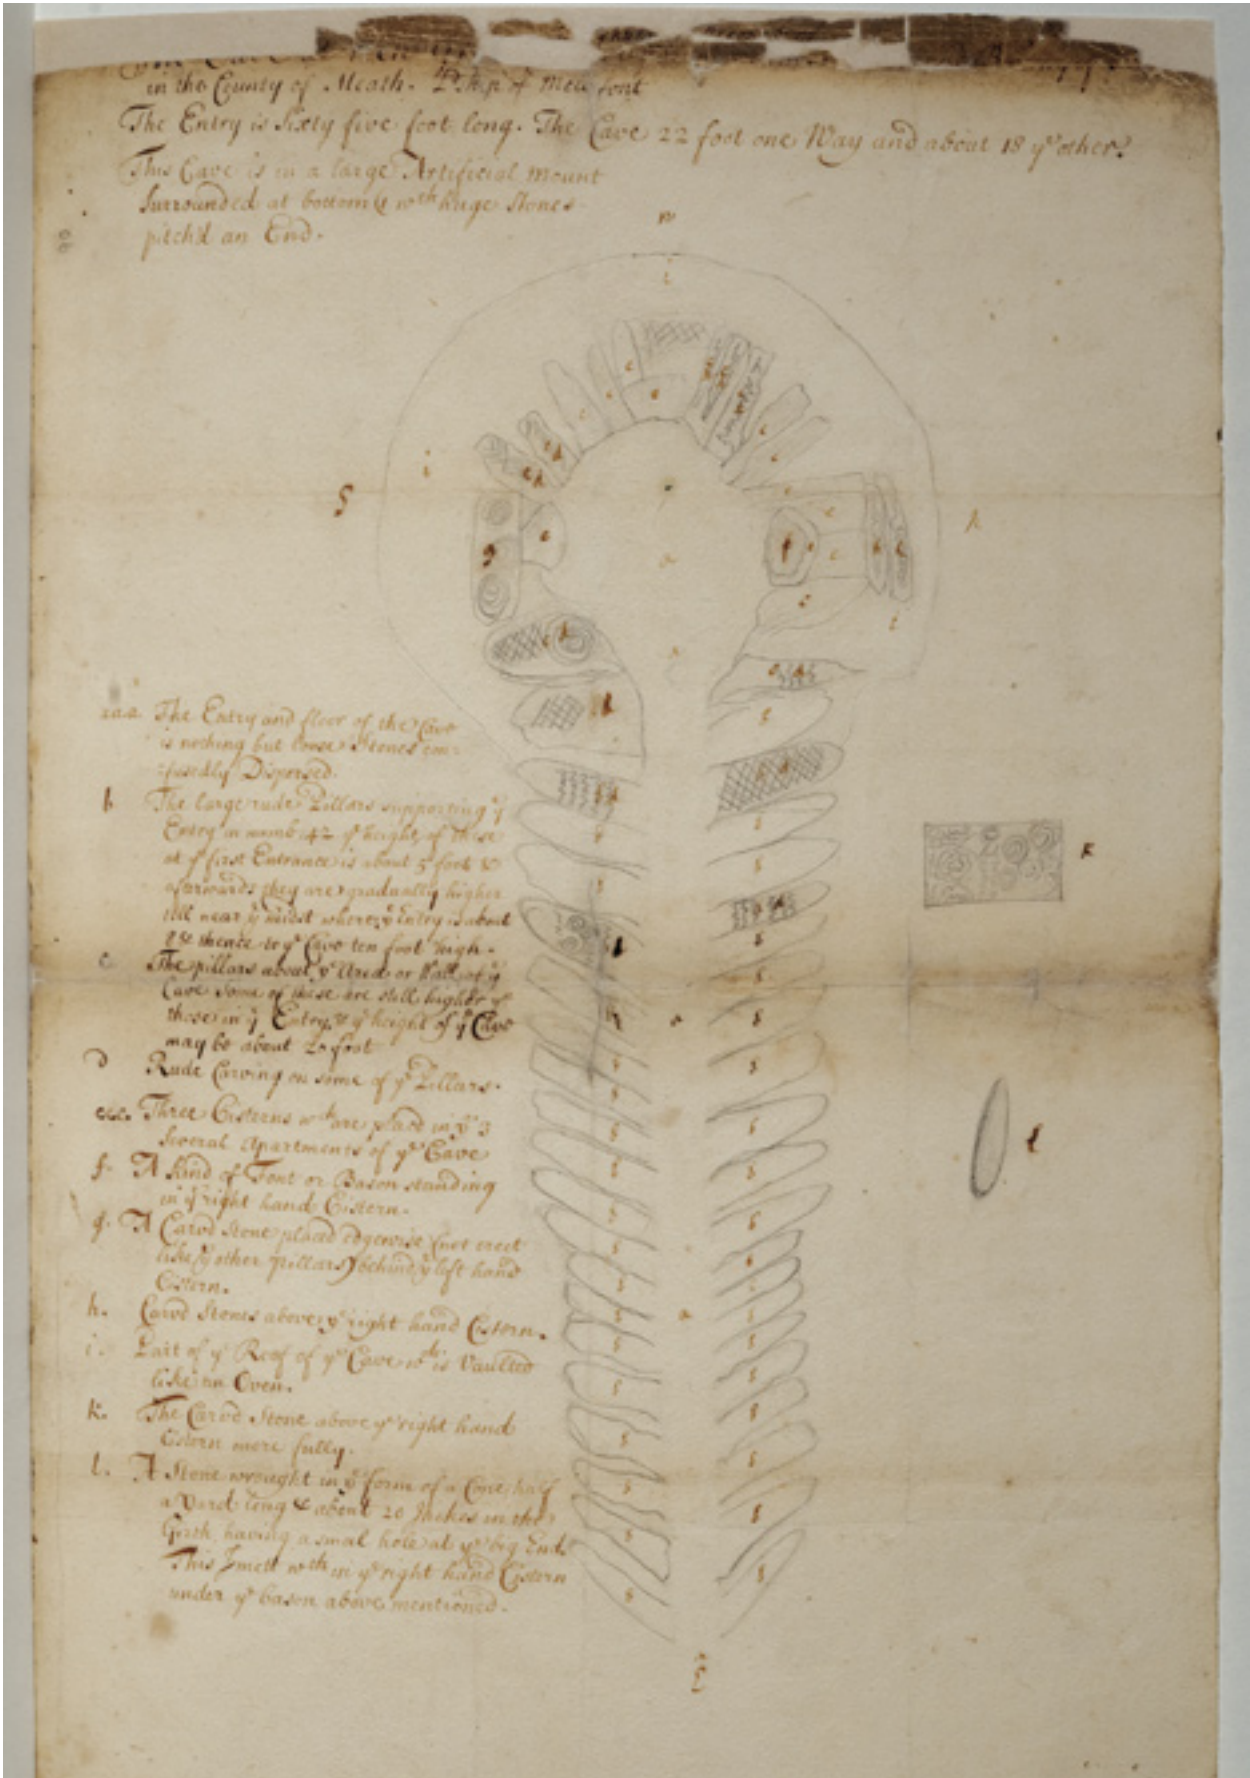 in the County of Meath. Ldship of Mellefont
The Entry is Sixty five foot long. The Cave 22 foot one Way and about 18 ye other.
This Cave is in a large Artificial Mount
Surrounded at bottom wth huge Stones
pitch'd an End.
n
i
S
aaa The Entry and floor of the Cave
is nothing but loose Stones con-
-fusedly Dispersed.
b The large rude Pillars supporting ye
Entry in numb 42 ye height of these
at ye first Entrance is about 5 foot &
afterwards they are gradually higher
till near ye midst where ye Entry is about
& thence to ye Cave ten foot high.
c The pillars about ye Area or Hall of ye
Cave some of these are still higher yn
those in ye Entry, & ye height of ye Cave
may be about 20 foot
D Rude Carving on some of ye Pillars.
eee. Three Cisterns wch are placd in ye 3
Several Apartments of ye Cave
f. A kind of Font or Bason standing
in ye right hand Cistern.
g. A Carvd Stone placed edgewise (not erect
like ye other pillars) behind ye left hand
Cistern.
h. Carvd Stones above ye right hand Cistern.
i. Part of ye Roof of ye Cave wch is Vaulted
like an Oven.
k. The Carvd Stone above ye right hand
Cistern more fully.
l. A Stone wrought in ye form of a Cone half
a Yard long & about 20 Inches in the
Girth having a smal hole at ye big End.
This I mett wth in ye right hand Cistern
under ye bason above mentioned.
K
l
E